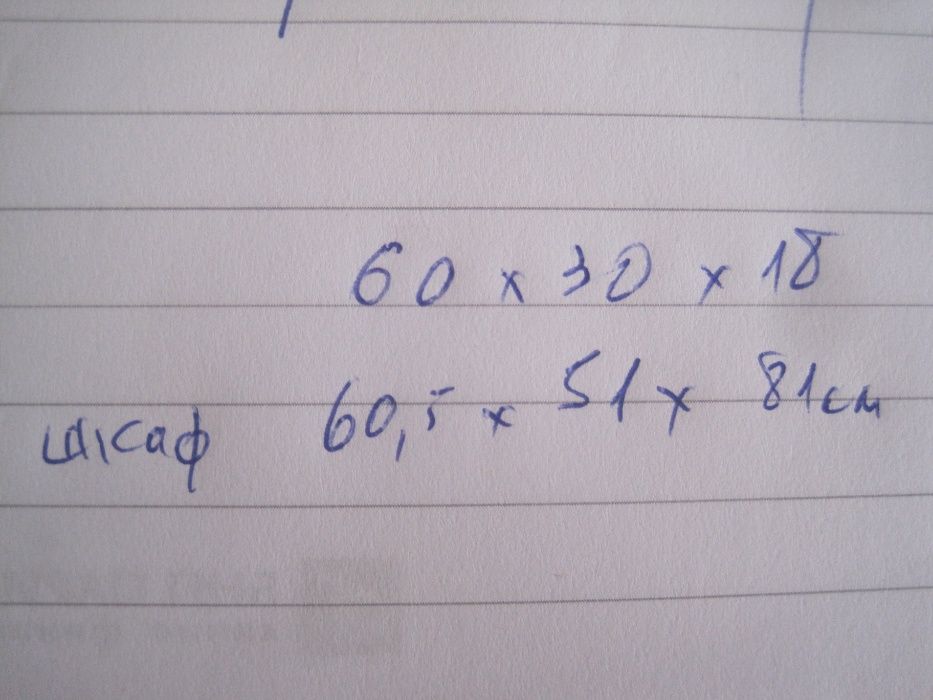 60 x 30 x 18
шкаф 60,5 x 51 x 81см